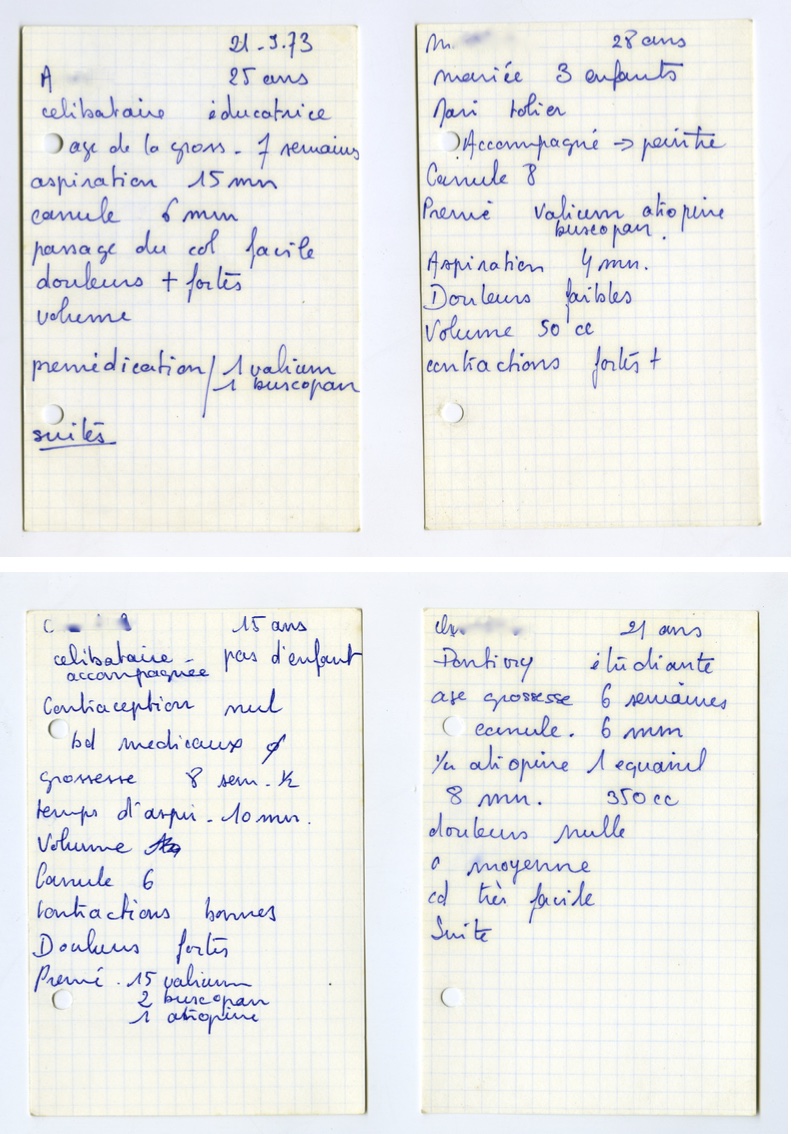 21-9.73
A 25 ans
celibataire éducatrice
age de la gross - 7 semaines
aspiration 15 mn
canule 6 mm
passage du col facile
douleurs + fortes
volume
premédication / 1 valium
1 buscopan
suites
M. 28 ans
mariée 3 enfants
Mari tolier
Accompagné → peintre
Canule 8
Premé valium atropine
buscopan.
Aspiration 4 mn.
Douleurs faibles
Volume 50 cc
contractions fortes +
C 15 ans
celibataire - pas d'enfant
accompagnée
Contraception nul
bd medicaux ø
grossesse 8 sem. ½
temps d'aspi - 10 mn.
Volume
Canule 6
Contractions bonnes
Douleurs fortes
Premé. 15 valium
2 buscopan
1 atropine
21 ans
Pontivy étudiante
age grossesse 6 semaines
canule. 6 mm
¼ atropine 1 equanil
8 mn. 350 cc
douleurs nulle
c moyenne
col très facile
Suite